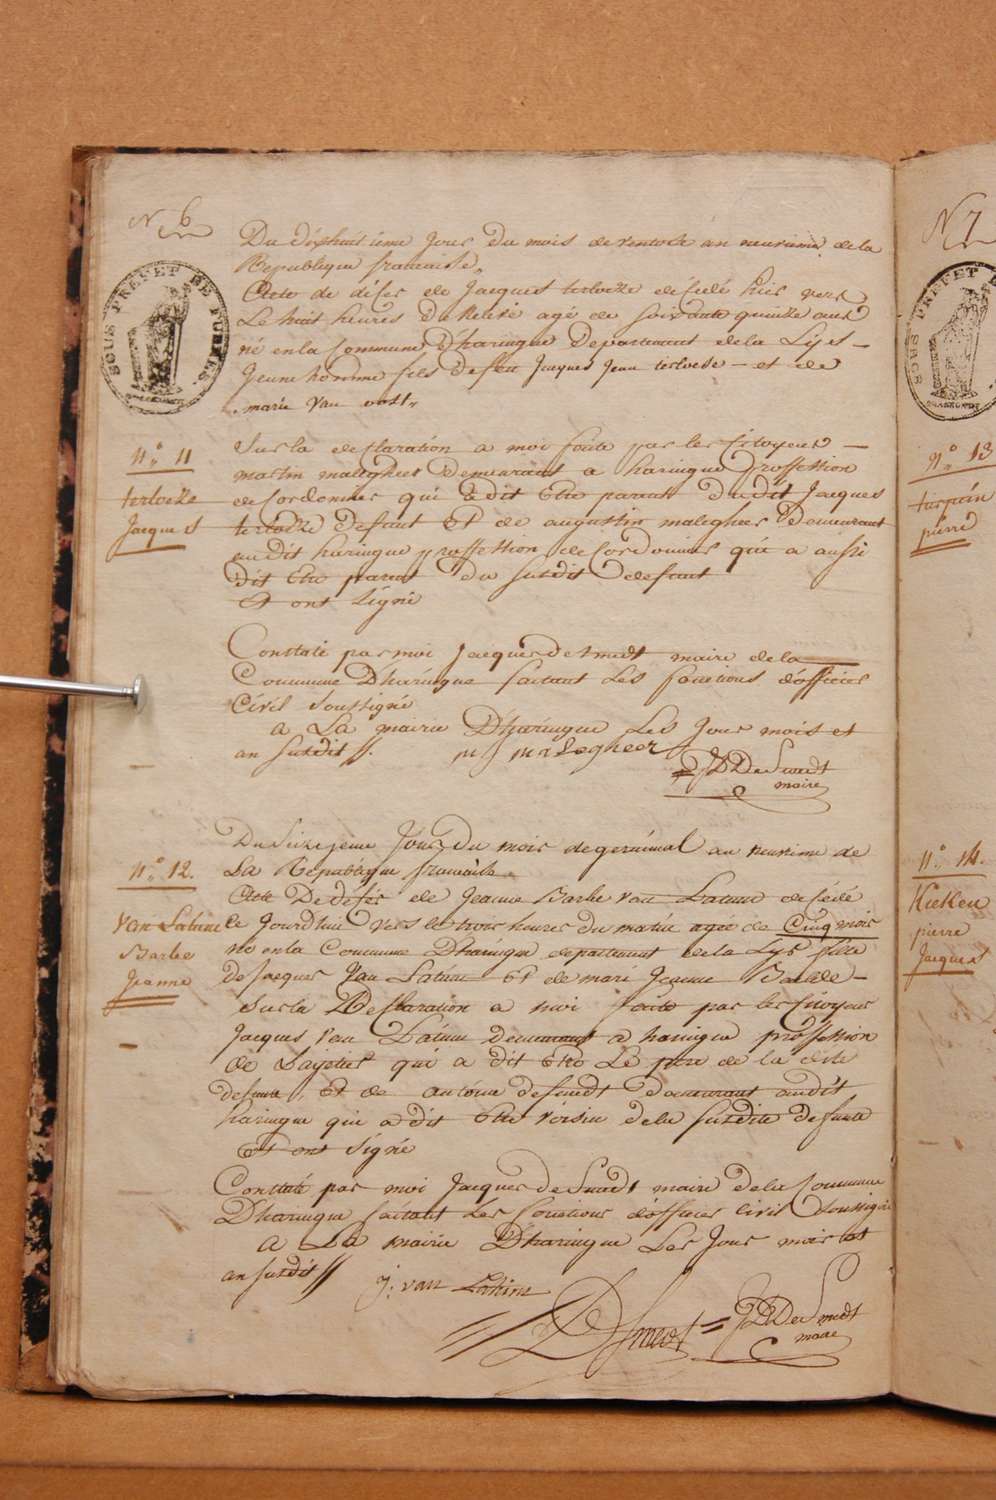 N 6
SOUS PREFET DE FURNES
Du dixhuitieme jour du mois de ventose an neuvieme de la
Republique francaise,
Acte de déses de Jacques terlocke déséde hier vers
Le huit heures Du agé de soixante quinze ans
né en la Commune D'haringue Departement de la Lys —
Jeune homme fils defeu Jacques Jean terlocke — et de
marie Van
n° 11
terlocke
Jacques
Sur la declaration a moi faite par les Citoyens —
martin maleghier Demeurant a haringue proffession
de Cordonnier qui a dit Etre parent Dudit Jacques
terlocke Defunt Et de augustin maleghier Demeurant
audit haringue proffession de Cordonnier qui a aussi
dit Etre parent du susdit defunt
Et ont signé
Constaté par moi Jacques de Smedt maire de la
Commune D'haringue faisant Les fonctions d'officier
Civil soussigné
a La mairie D'haringue Les Jour mois et
an susdit maLegheer
DeSmedt
maire
n° 12.
Van Latume
Barbe
Jeanne
Du Seizejeme Jour Du mois de germinal an neuvieme de
La Republique francaise
Acte De deses de Jeanne Barbe van Latum deséde
ce Jourdhui vers le trois heures du matin agée de Cinq mois
né en la Commune D'haringue departement de la Lys fille
de Jacques Van Latum Et de marie Jeanne
Sur la Declaration a moi faite par les Citoyens
Jacques Van Latum Demeurant a haringue proffession
de qui a dit Etre Le pere de la dite
defunte, Et de antoine desmedt Demeurant audit
haringue qui a dit Etre voisin de la susdite defunte
Et ont signé
Constaté par moi Jacques de Smedt maire de la Commune
D'haringue faisant Les fonctions d'officier Civil soussigné
a La mairie D'haringue Les Jour mois et
an susdit J: van Latum
DSmedt DeSmedt
maire
N 7
SOUS PREFET
n° 13
turpin
pierre
n° 14.
Kieken
pierre
Jacques